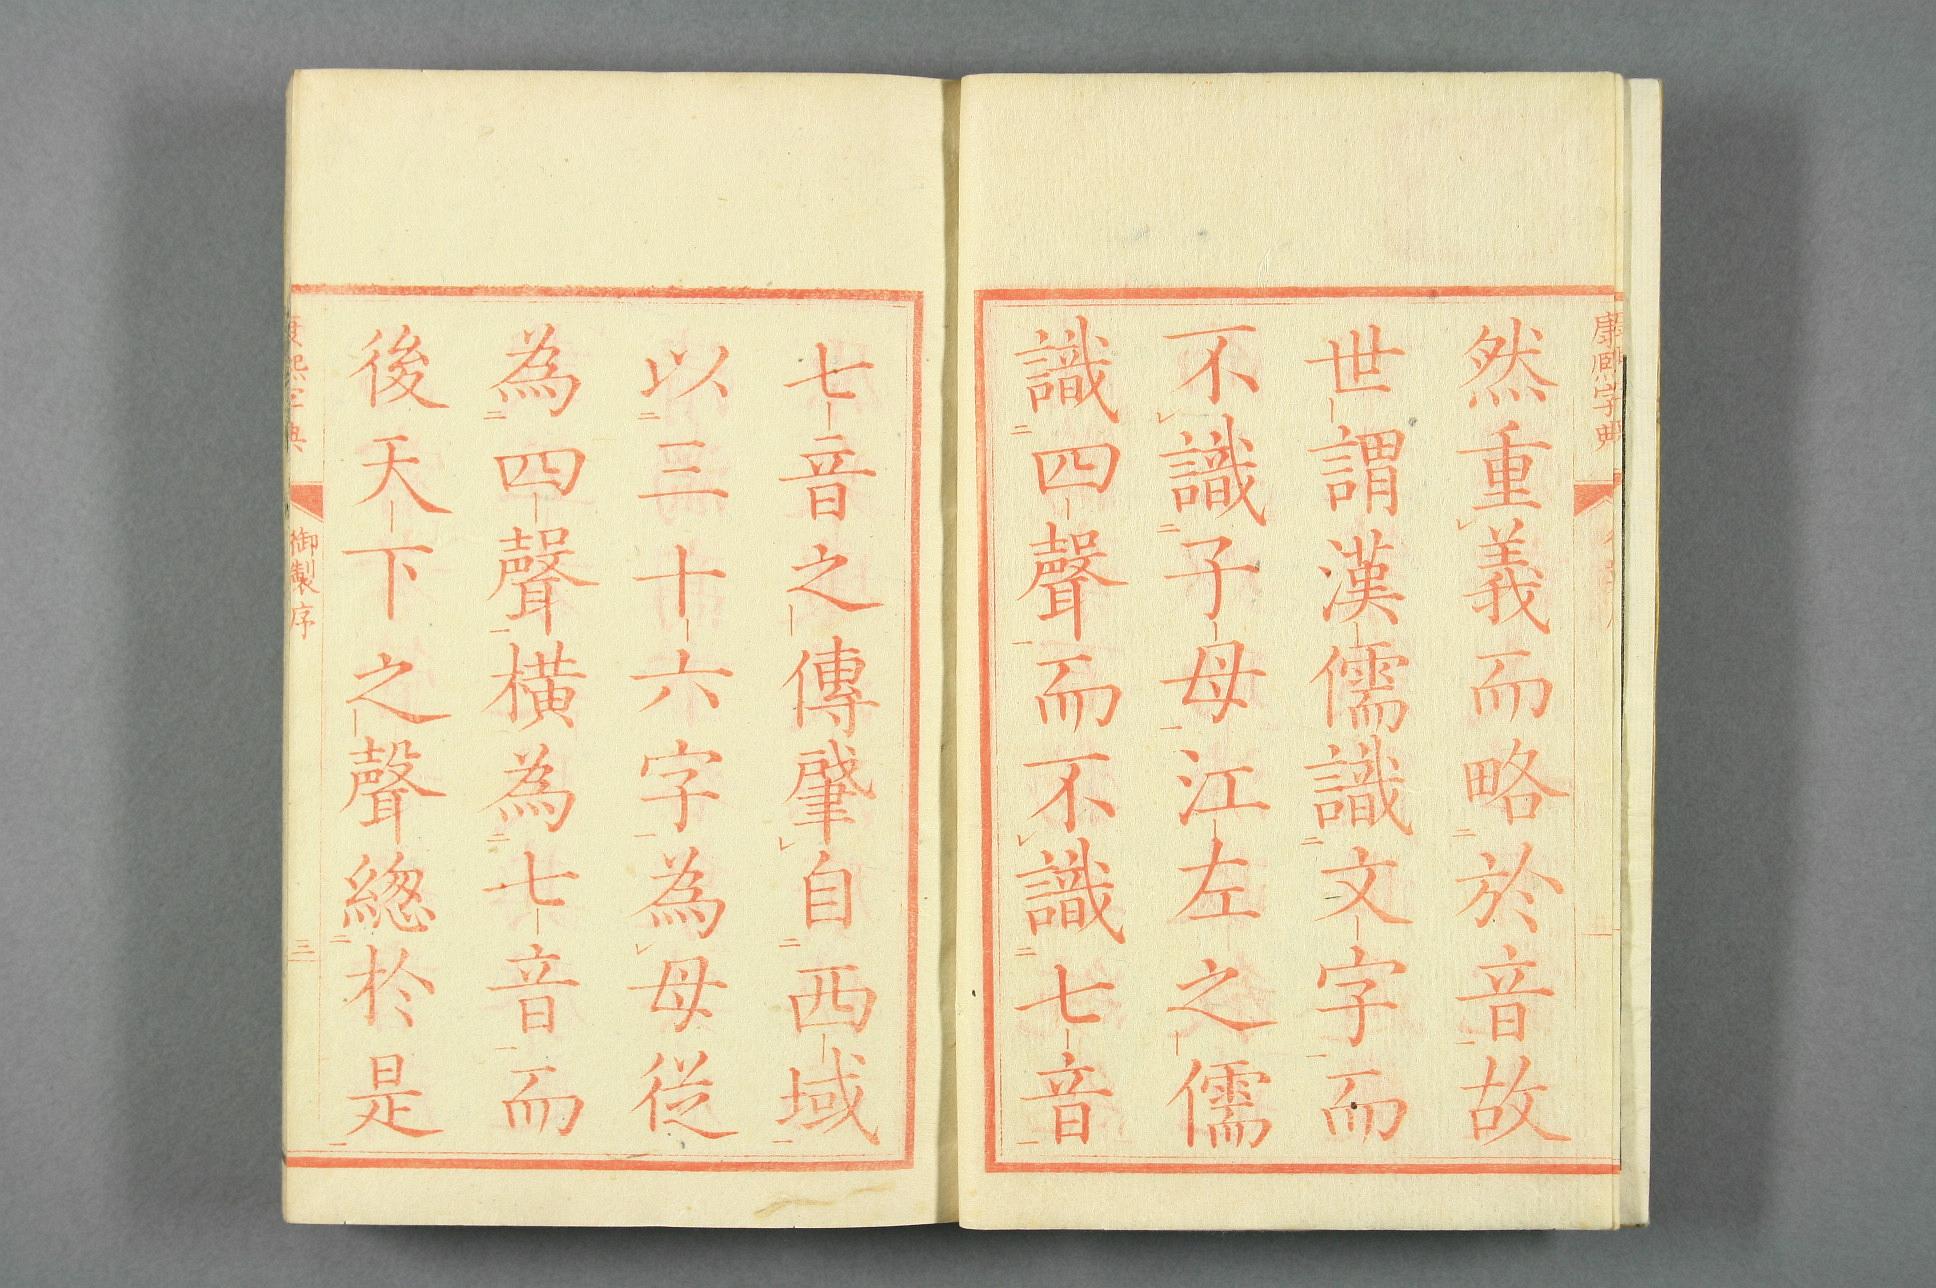 康熙字典
然重義而略於音故
世謂漢儒識文字而
不識子母江左之儒
識四聲而不識七音
七音之傳肈自西域
以三十六字為母從
為四聲橫為七音而
後天下之聲緫於是
康熙字典
御製序
三